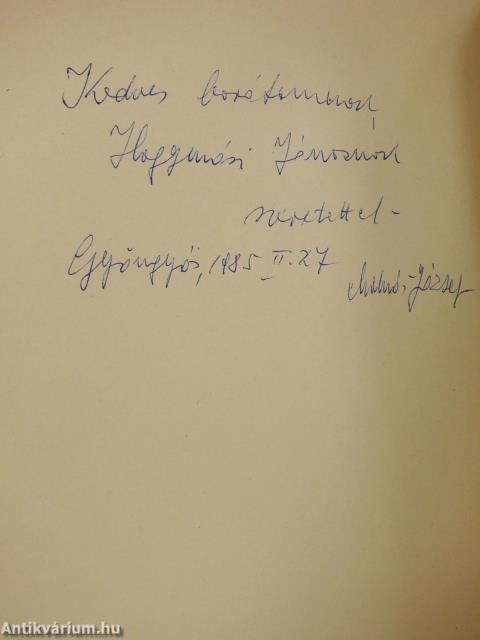 Kedves barátomnak,
Hagymási Jánosnak
szeretettel –
Gyöngyös, 1985. II. 27
József
Antikvárium.hu